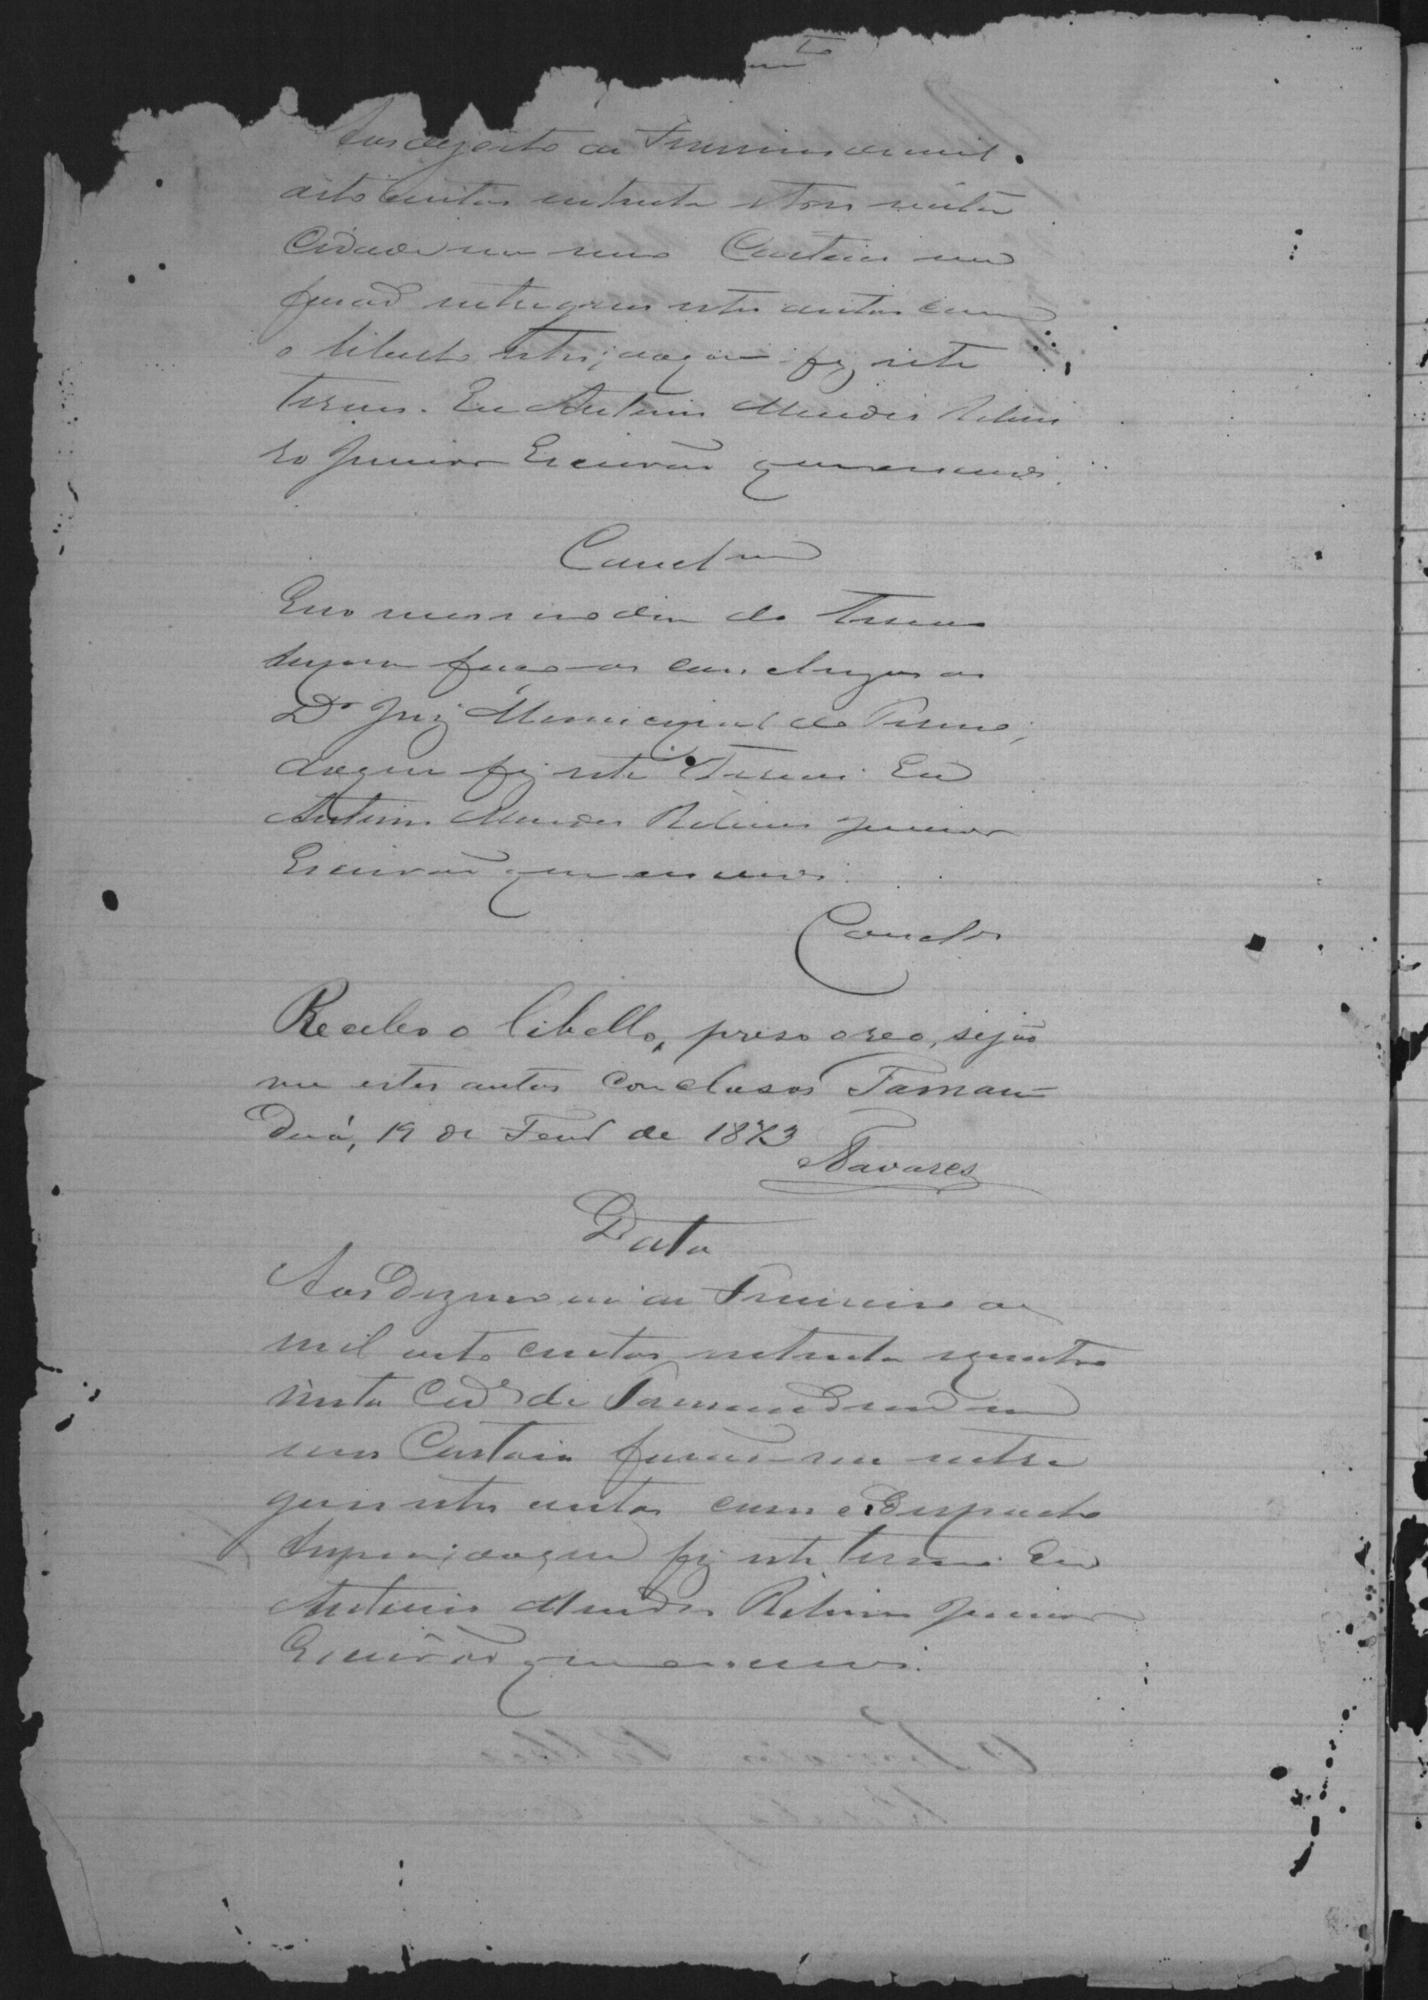 Aos dezoito de Fevereiro de mil
oito centos e setenta e tres nesta
Cidade em meo Cartorio me
forão entregues estes autos com
o libello retro; do que fiz este
termo. Eu Antonio Mendes Ribei
ro Junior Escrivão que escrevi.
Conclusão
E no mesmo dia do termo
supra faço-os conclusos ao
Dr Juiz Municipal do Termo;
do que fiz este Termo. Eu
Antonio Mendes Ribeiro Junior
Escrivão que escrevi.
Conclos
Recebo o libello, preso o reo, sejão
me estes autos conclusos Taman=
duá, 19 de Fevro de 1873
Tavares
Data
Aos Dezenove de Fevereiro de
mil oito centos e setenta e
nesta Cide de Tamanduá em
meo Cartorio forão-me entre
gues estes autos com o Despacho
supra; do que fiz este termo. Eu
Antonio Mendes Ribeiro Junior
Escrivão que escrevi.